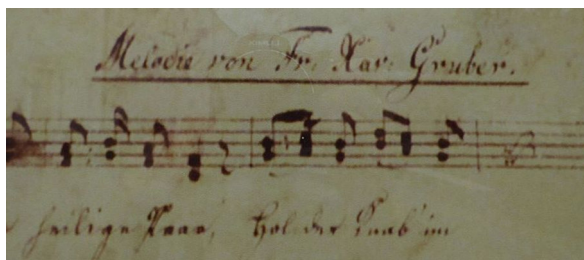 Melodie von Fr. Xav. Gruber.
heilige Paar, Hol-der Knab' im